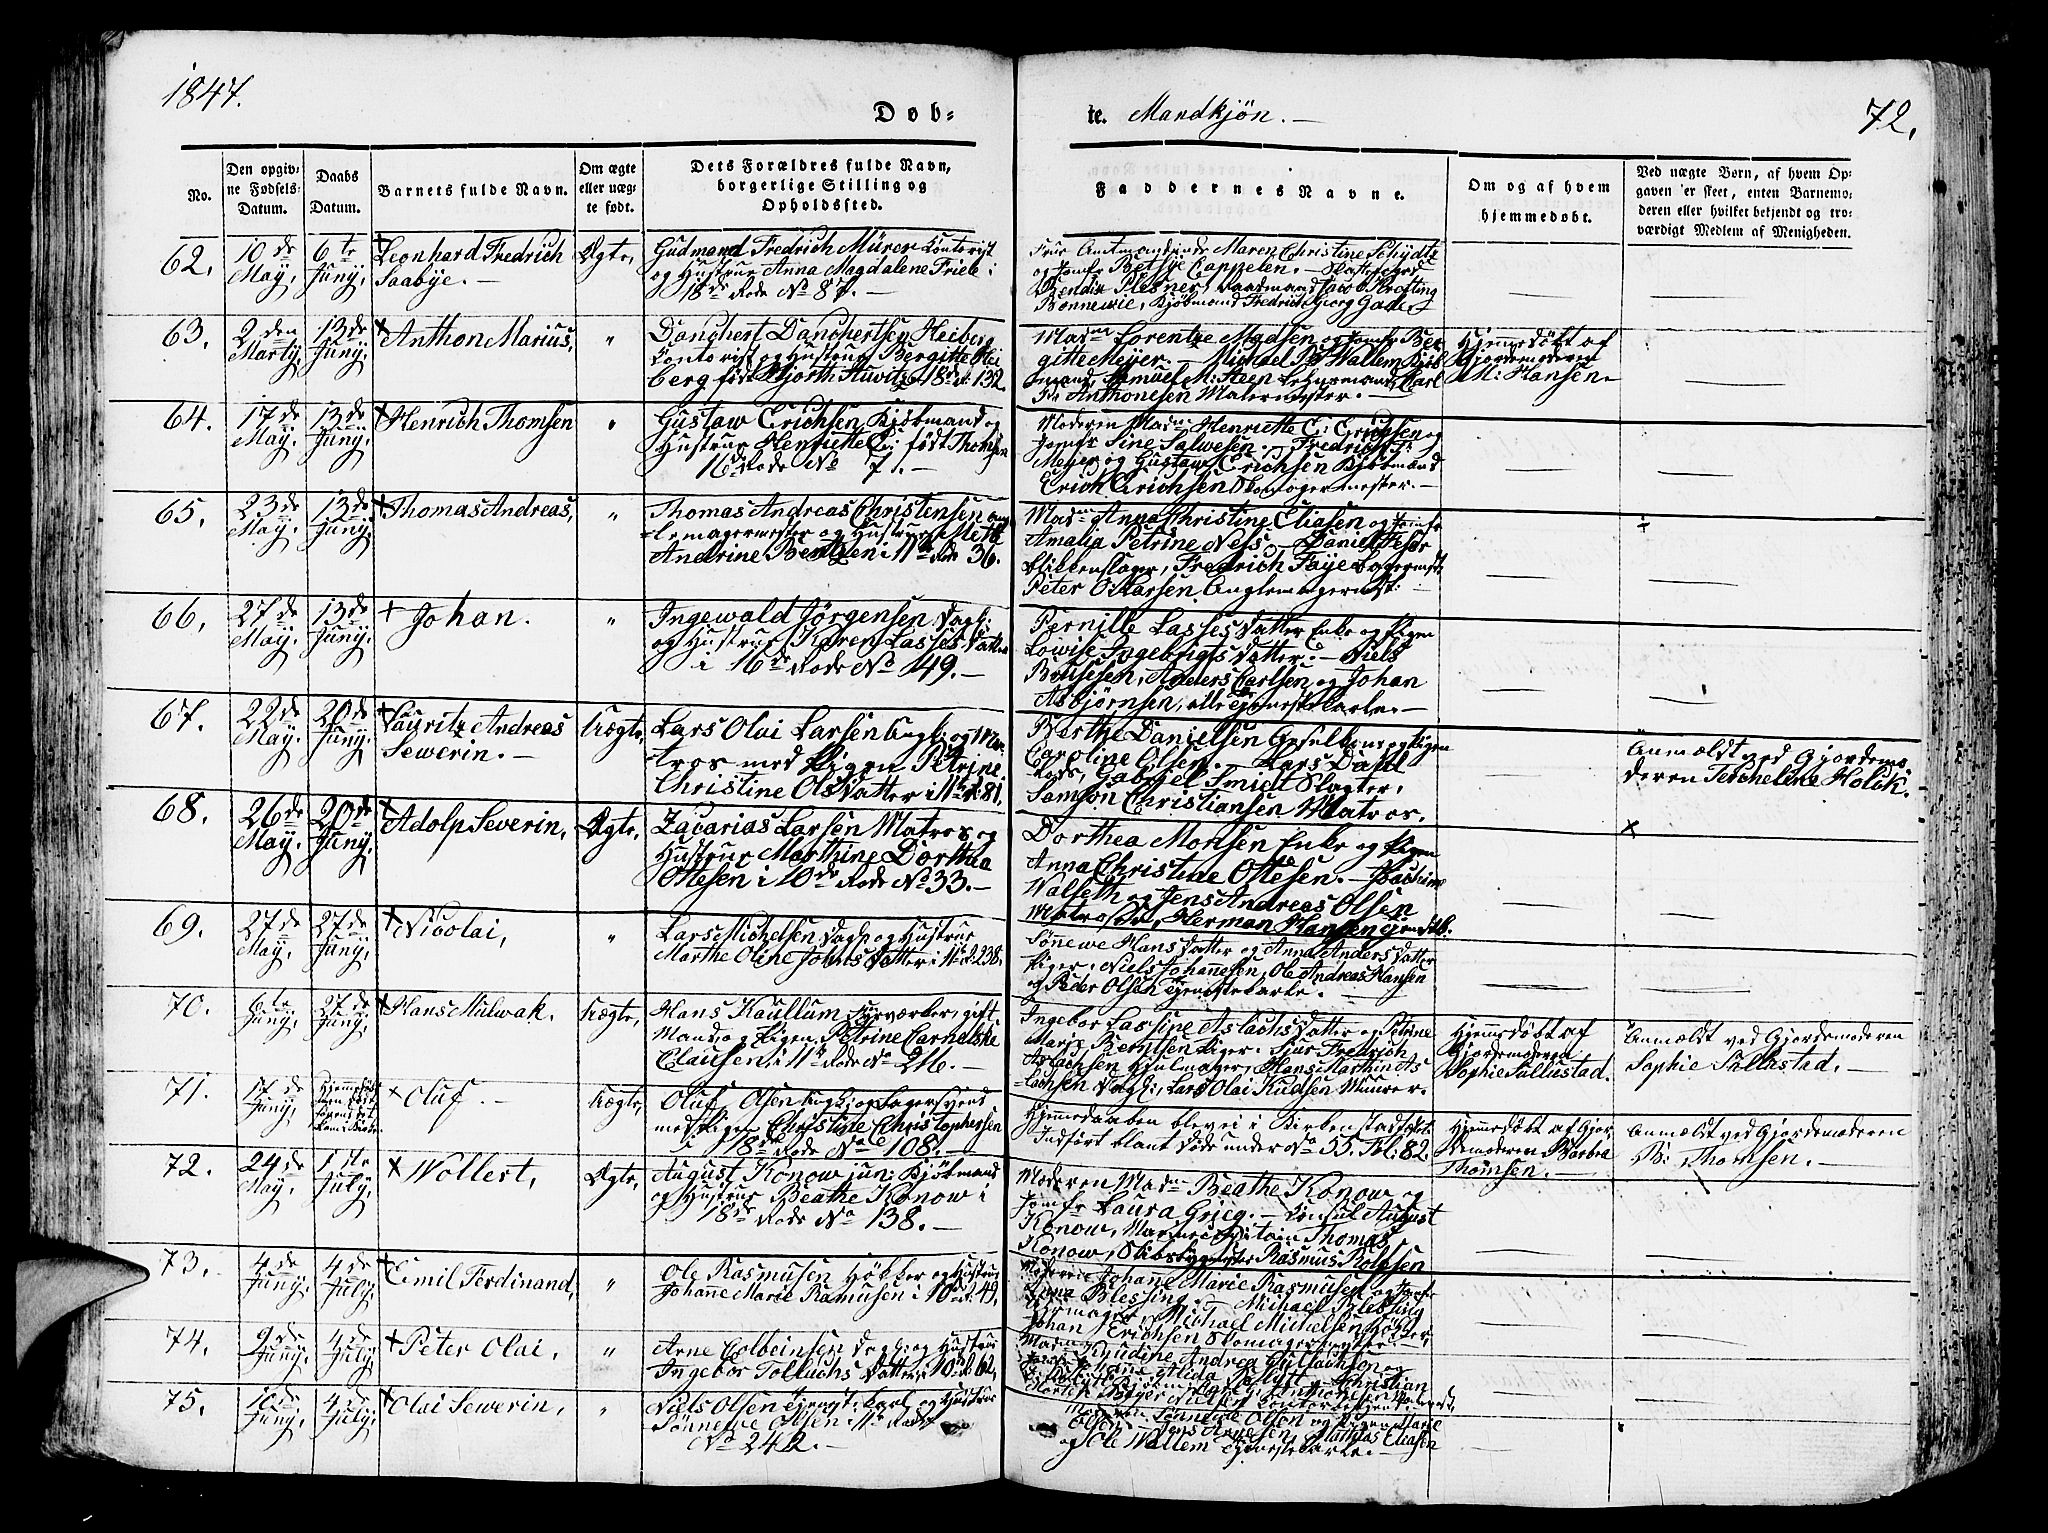 1847.
Døb-
te. Mandkjön. —
72.
No.
Den opgiv-
ne Fødsels-
Datum.
Daabs
Datum.
Barnets fulde Navn.
Om ægte
eller uæg-
te født.
Dets Forældres fulde Navn,
borgerlige Stilling og
Opholdssted.
Faddernes Navne.
Om og af hvem
hjemmedøbt.
Ved uægte Børn, af hvem Op-
gaven er skeet, enten Barnemo-
deren eller hvilket betjendt og tro-
værdigt Medlem af Menigheden.
62.
10de
May,
6te
Juny,
Leonhard Fredrich
Saabÿe. —
Ægte,
Gudmand Fredrich Mürer Kontorist
og Hustrue Anna Magdalene Friele i
18de Rode No 87. —
Frue Amtmandinde Maren Christine Schÿdtz
og Jomfr Betsÿe Cappelen. —
Plesner,
Bonnewie, Kjöbmand Fredrich Georg Gade.
63.
2den
Marty,
13de
Juny,
Anthon Marius,
"
Danchert Danchertsen Heiberg
Kontorist og Hustrue Bergitte Hei
berg født Hjorth 18de R: 132
Madm Lorentze Madsen og Jomfr Ber
gitte Meÿer. — Michael Wallem Kjöb
mand, Samuel M: Steen Carl
Anthonesen Malermester. —
Hjemedöbt af
Gjordemoderen
M: Hansen. —
64.
17de
May,
13de
Juny,
Henrich Thomsen
"
Gustaw Erichsen Kjöbmand og
Hustrue Henriette E: født Thomsen
16de Rode No 71. —
Moderen Madm Henriette E: Erichsen og
Jomfr Sine Salwesen. — Fredrich
Meÿer og Gustaw Erichsen Kjöbmænd
Erich Erichsen Skomagermester. —
65.
23de
May,
13de
Juny,
Thomas Andreas,
"
Thomas Andreas Christensen
magermester og Hustrue Mette
Andrine Bentzen i 11te Rode 36.
Madm Anna Christine Eliasen og Jomfr
Amalia Petrine Ness. — Daniel
blikkenslager, Fredrich Faÿe Bagermest
Peter O: Larsen
66.
27de
May,
13de
Juny,
Johan.
"
Ingewald Jörgensen Dagk:
og Hustrue Karen Lasses Datter
i 16de Rode No 49. —
Pernille Lasses Datter Enke og Pigen
Lowise Ingebrigts Datter. — Niels
Anders Carlsen og Johan
Asbjörnsen, alle tjenestekarle. —
67.
22de
May,
20de
Juny,
Lauritz Andreas
Sewerin. —
Uægte,
Lars Olai Larsen Ungk: og Ma-
tros med Pigen Petrine
Christine Ols Datter i 11te R: 81.
Berthe Danielsen og Pigen
Caroline Olsen. — Lars Dahl
Gabriel Smidt Slagter,
Samson Christiansen Matros.
Anmældt ved Gjordemo-
deren Techelene Holck.
68.
26de
May.
20de
Juny.
Adolph Severin,
Ægte,
Zacarias Larsen Matros og
Hustrue Marthine Dorthea
Ottesen i 10de Rode No 33. —
Dorthea Monsen Enke og Pigen
Anna Christine Ottesen. —
Walseth og Jens Andreas Olsen
Matroser, Herman Hansen
69.
27de
May,
27de
Juny,
Nicolai,
"
Lars Michelsen Dagk: og Hustrue
Marthe Oline Johns Datter i 11te R: 238.
Sönnewe Hans Datter og Anna Anders Datter
Piger. Niels Johannesen, Ole Andreas Hansen
og Peder Olsen tjenestekarle. —
70.
6te
Juny,
27de
Juny,
Hans Milwak.
Uægte,
Hans Kaullum Fÿrværker, gift
Mand, og Pigen Petrine Carnelske
Clausen, i 11te Rode No 216. —
Ingebor Lassine Aslachs Datter og Petrine
Marie Berntsen Piger. Siur Fredrich
Aslachsen Hjulmager, Hans Marthin As
lachsen Dagk:, Lars Olai Knudsen Muurer.
Hjemmedöbt af
Gjordemoderen
Sophie Sallustad.
Anmældt ved Gjordemoderen
Sophie Sallustad. —
71.
17de
Juny,
Oluf. —
Uægte,
Oluf Olsen Ungk: og Lagersvend
med Pigen Christine Christophersen
i 18de Rode No 108. —
Hjemedaaben blev ei i Kirken stadfæstet
Indført blant döde under No 55. Fol: 82.
Hjemedöbt af Gjor-
demoderen Barbra
Thomsen. —
Anmældt ved Gjordemoderen
B: Thomsen. —
72.
24de
May,
1ste
July,
Wollert,
Ægte,
August Konow jun: Kjöbmand
og Hustrue Beathe Konow i
18de Rode No 138. —
Moderen Madm Beathe Konow og
Jomfr Laura Grieg. — Consul August
Konow, Thomas
Konow, Rasmus Rolfsen
73.
4de
Juny,
4de
July,
Emil Ferdinand,
"
Ole Rasmusen Høkker og Hustrue
Johanne Marie Rasmusen i 10de R: 43,
Moderen Johane Marie Rasmusen og Jomfr
Blessing. — Michael Blessing
Michael Michelsen Høkker
Johan Erichsen Skomagermester. —
74.
9de
Juny,
4de
July,
Peter Olai,
"
Arne Colbeinsen Dagk: og Hustrue
Ingebor Tollachs Datter i 10de R: 62,
Madm Andrea Gullachsen og
Alida — Christian
75.
10de
Juny,
4de
July,
Olai Sewerin,
"
Niels Olsen tjenestekarl og Hustrue
Sönnewe Olsen i 11te Rode
No 242. —
Moderen Sönnewe Olsen og Pigen Marie
Olsen. Jens Arnesen, Mathias Eliasen
og Ole Wallem tjenestekarle. —